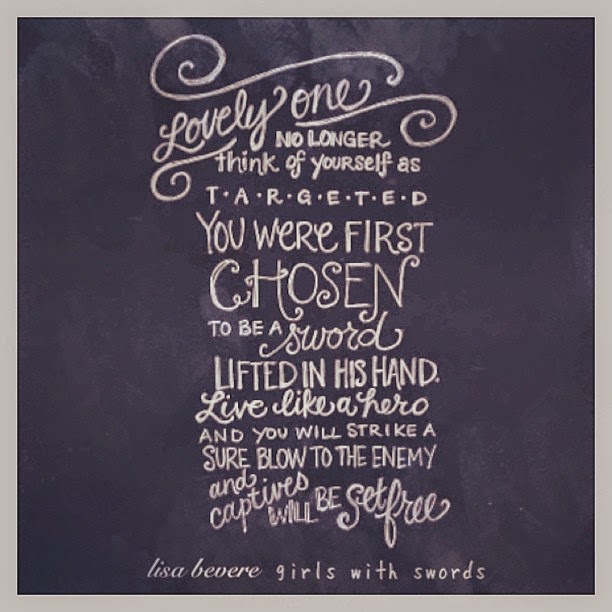 Lovely one
NO LONGER
think of yourself as
T·A·R·G·E·T·E·D
YOU WERE FIRST
CHOSEN
TO BE A sword
LIFTED IN HIS HAND.
Live like a hero
AND YOU WILL STRIKE A
SURE BLOW TO THE ENEMY
and captives WILL BE set free
lisa bevere girls with swords